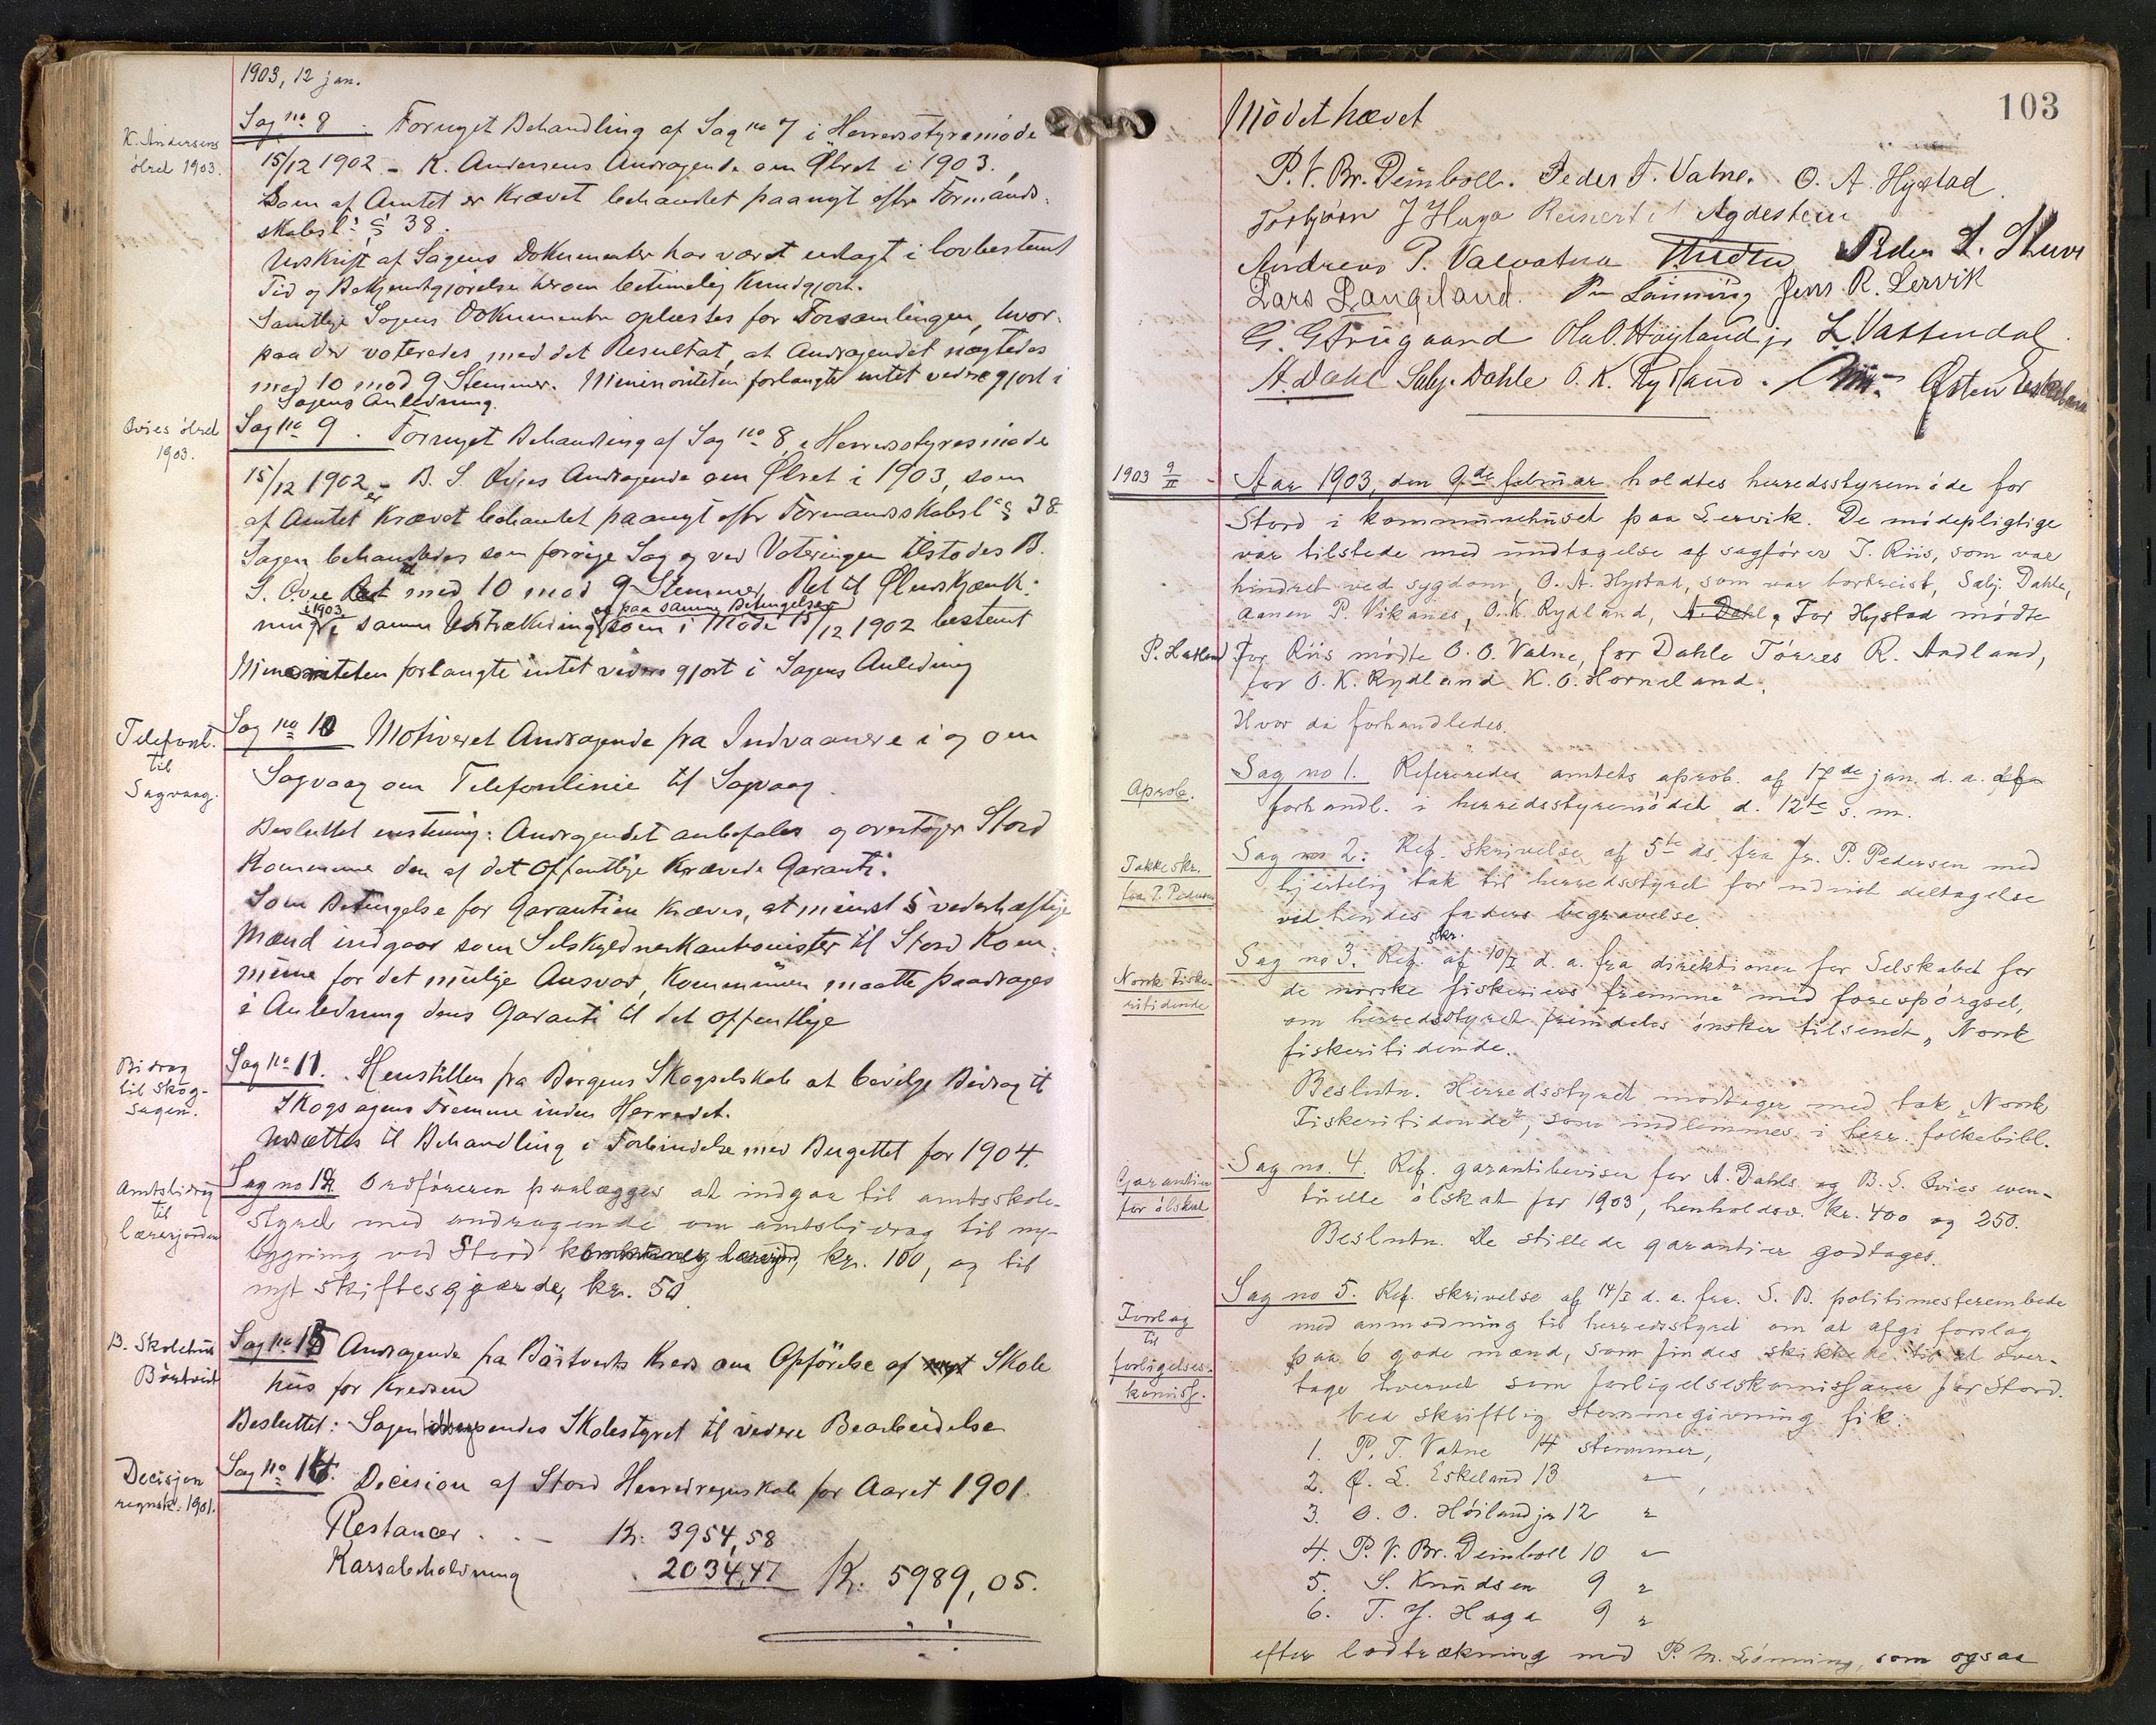 1903, 12 jan.
K. Andersens
ølret 1903.
Sag no 8. Fornyet Behandling af Sag no 7 i Herredsstyremøde
15/12 1902. - K. Andersens Andragende om Ølret i 1903,
Som af Amtet er Krævet behandlet paanyt efter Formands-
skabsl: § 38.
Udskrift af Sagens Dokumenter har været udlagt i lovbestemt
Tid og Bekjendtgjørelse herom betimelig Kundgjort.
Samtlige Sagens Dokumenter oplæstes for Forsamlingen, hvor-
paa der voteredes med det Resultat, at Andragendet nægtedes
med 10 mod 9 Stemmer. Minoriteten forlangte intet videre gjort i
Sagens Anledning.
Øvies ølret
1903.
Sag no 9. Fornyet Behandling af Sag no 8 i Herredsstyresmøde
15/12 1902 - B. S. Øvies Andragende om Ølret i 1903, som
af Amtet er Krævet behandlet paanyt efter Formandsskabsl § 38
Sagen behandledes som forrige Sag og ved Voteringen tilstodes B.
S. Øvie med 10 mod 9 Stemmer Ret til Øludskjænk-
ning i 1903 i samme Udstrækning og paa samme Betingelser som i Møde 15/12 1902 bestemt
Minoriteten forlangte intet videre gjort i Sagens Anledning
Telefonl.
til
Sagvaag.
Sag no 10 Motiveret Andragende fra Indvaanere i og om
Sagvaag om Telefonlinie til Sagvaag.
Besluttet enstemig: Andragendet anbefales og overtager Stord
Kommune den af det Offentlige Krævede Garanti.
Som Betingelse for Garantien Kræves, at mindst 5 vederhæftige
Mænd indgaar som Selskyldnerkautionister til Stord Kom-
mune for det mulige Ansvar, Kommunen maatte paadrages
i Anledning dens Garanti til det offentlige
Bidrag
til Skog-
sagen.
Sag no 11. Henstillen fra Bergens Skogselskab at bevilge Bidrag til
Skogsagens Fremme inden Herredet.
Udsættes til Behandling i Forbindelse med Bugettet for 1904.
Amtsbidrag
til
lærerjorden
Sag no 12 Ordføreren paalægges at indgaa til amtsskole-
styret med andragende om amtsbidrag til ny-
bygning ved Stord lærerjord, kr. 100, og til
nyt skiftesgjærde, kr. 50
B. Skolehus
Børtveit
Sag no 13 Andragende fra Børtveits Kreds om Opførelse af Skole
hus for Kredsen
Besluttet: Sagen Skolestyret til videre Bearbeidelse
Decisjon
regnsk. 1901.
Sag no 14. Decision af Stord Herredregnskab for Aaret 1901.
Restancer . . - Kr. 3954,58
Kassabeholdning 2034,47 Kr. 5989,05.
103
Mødet hævet
P. V. Br. Deinboll. Peder T. Vatne. O. A. Hystad
Torbjørn J Haga Reinert Agdestein
Andreas P. Valvatna Peder L.
Lars Langeland. Lønning Jens R. Lervik
G. G Ola O. Høyland jr L Vattendal
A. Dahl Salg. Dahle O. K. Rydland. Østen Eskeland
1903 9/II - Aar 1903, den 9de februar holdtes herredsstyremøde for
Stord i kommunehuset paa Lervik. De mødepligtige
var tilstede med undtagelse af sagfører J. Riis, som var
hindret ved sygdom, O. A. Hystad, som var bortreist, Salg. Dahle,
aanen P. Vikanes, O. K. Rydland, A. Dahl, For Hystad mødte
P. Latland, For Riis mødte O. O. Vatne, for Dahle Tørres R. Aadland,
for O. K. Rydland K. O. Horneland.
Hvor da forhandledes.
Aprob.
Sag no 1. Refereredes amtets aprob. af 17de jan. d. a.
forhandl. i herredsstyremødet d. 12te s. m.
Takkeskr.
fra P. Pedersen
Sag no 2: Ref. skrivelse af 5te ds. fra fr. P. Pedersen med
hjertelig tak til herredsstyret for udvist deltagelse
ved hendes faders begravelse.
Norsk Fiske-
ritidende
Sag no 3. Ref. skr. af 10/I d. a. fra direktionen for Selskabet for
de norske fiskeriers fremme" med forespørgsel,
om herredsstyret fremdeles ønsker tilsendt „Norsk
fiskeritidende.
Beslutn. Herredsstyret modtager med tak „Norsk
Fiskeritidende", som indlemmes i herr. folkebibl.
Garantier
for ølskat
Sag no. 4. Ref. garantibeviser for A. Dahls og B. S. Øvies even-
tuelle ølskat for 1903, henholdsv. kr. 400 og 250.
Beslutn. De stillede garantier godtages.
Forslag
til
forligelses-
komiss.
Sag no 5. Ref. skrivelse af 14/I d. a. fra S. B. politimesterembede
med anmodning til herredsstyret om at afgi forslag
paa 6 gode mænd, som findes skikkede til at over-
tage hvervet som forligelseskomissærer for Stord.
Ved skriftlig stemmegivning fik:
1. P. T. Vatne 14 stemmer,
2. Ø. L. Eskeland 13 "
3. O. O. Høiland jr 12 "
4. P. V. Br. Deinboll 10 "
5. S. Knudsen 9 "
6. T. J. Haga 9 "
efter lodtrækning med P. M. Lønning, som ogsaa